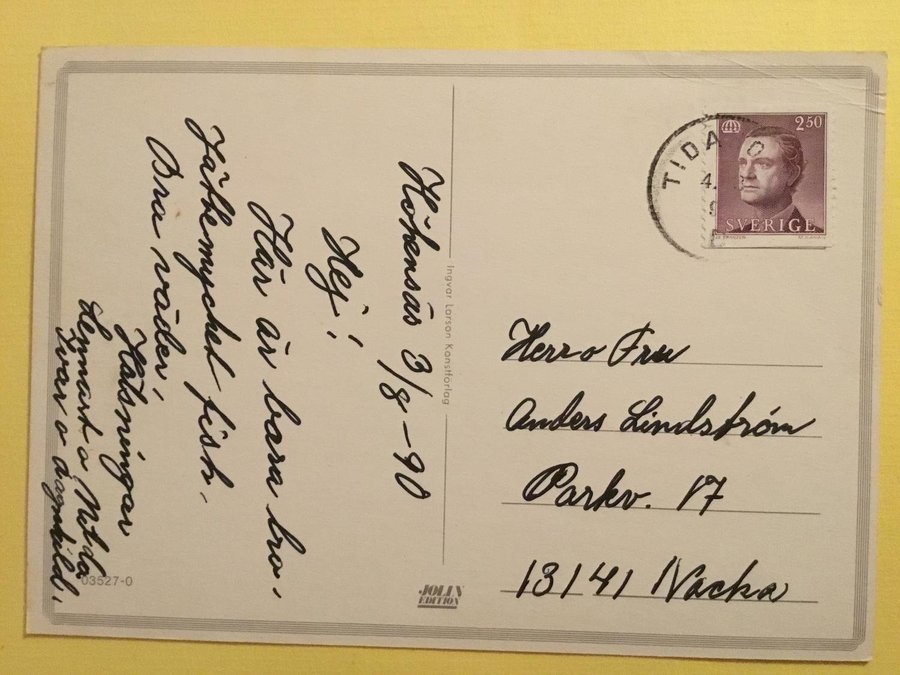 Hökensås 3/8-90
Hej!
Här är bara bra.
Jättemycket fisk.
Bra väder,
Hälsningar
Lennart o
Ivar o Ragnhild,
Ingvar Larson Konstförlag
2.50
TIDA O
4.
SVERIGE
Herr o Fru
Anders Lindström
Parkv. 17
13141 Nacka
03527-0
JOLIN
EDITION